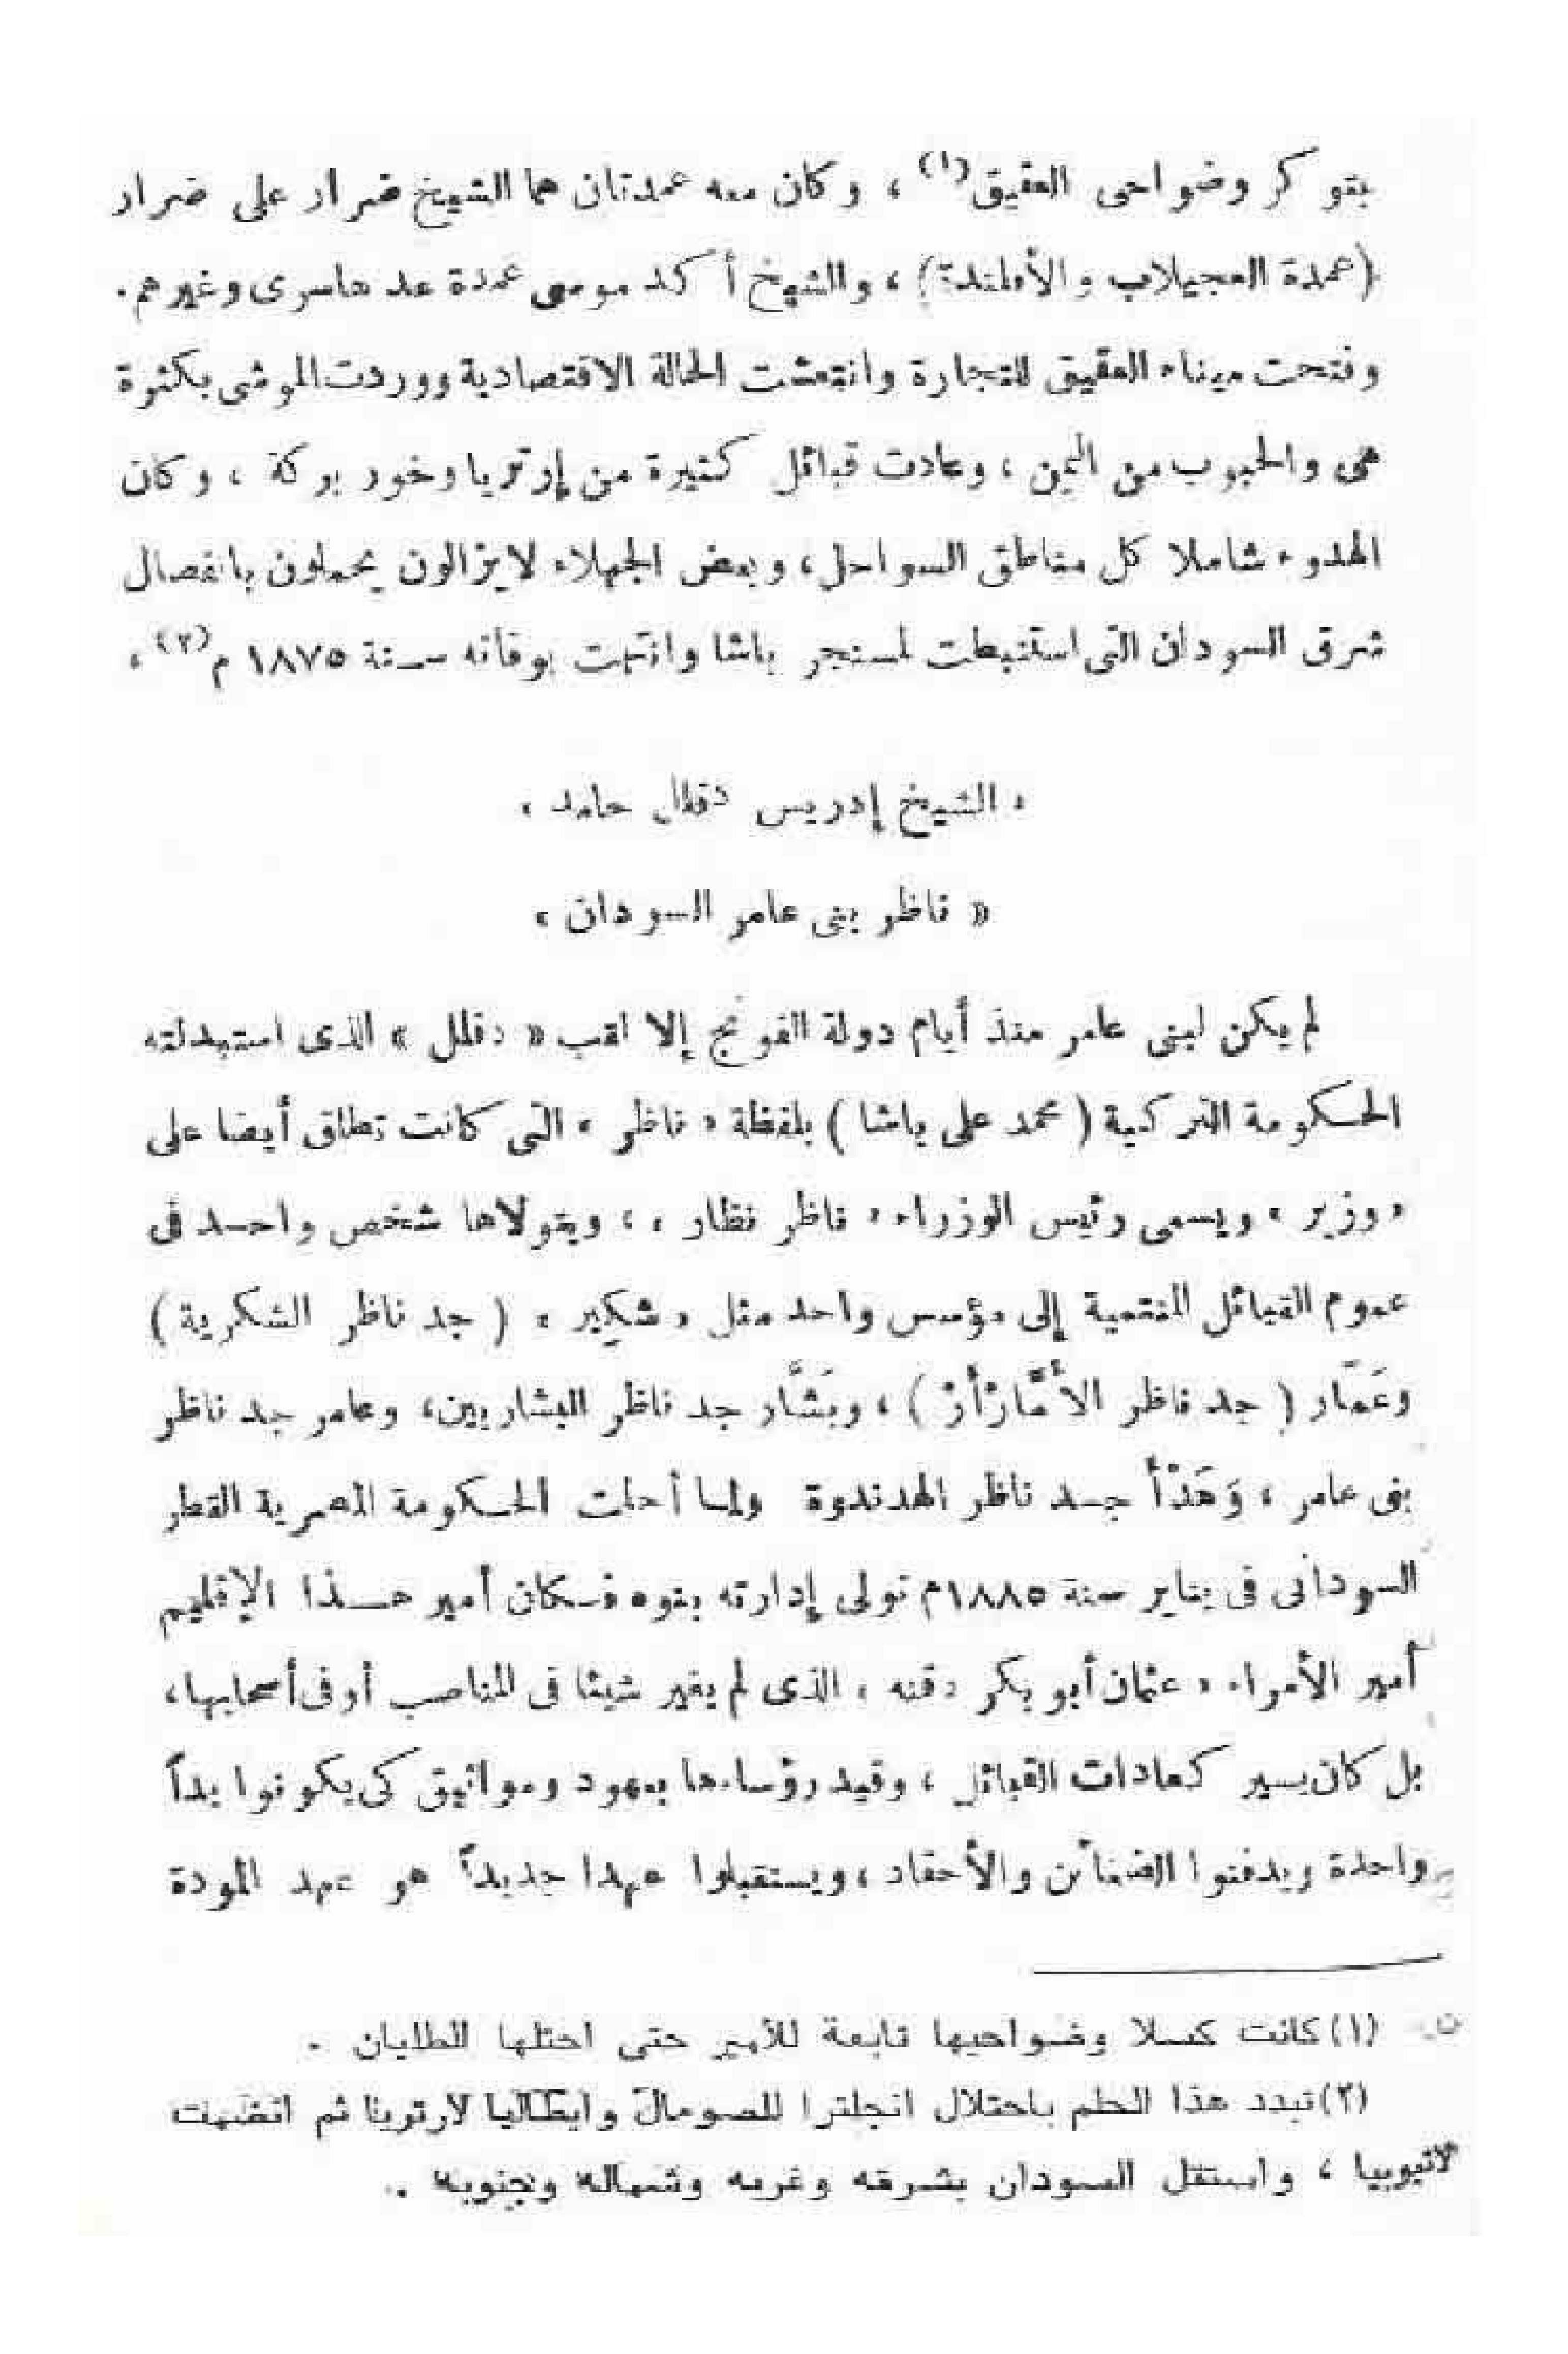 بتوكر وضواحى العقيق(١) ، وكان معه عمدتان هما الشيخ ضرار على ضرار
(عمدة العجيلاب والأفلندة) ، والشيخ أكد موسى عمدة عد هاسرى وغيرهم .
وفتحت ميناء العقيق للتجارة وانتعشت الحالة الاقتصادية ووردت المواشى بكثرة
هى والحبوب من اليمن ، وعادت قبائل كثيرة من إرتريا وخور بركة ، وكان
الهدوء شاملا كل مناطق السواحل ، وبعض الجهلاء لا يزالون يحملون بانفصال
شرق السودان التى استنبطت لمسنجر باشا وانتهت بوفاته سنة ١٨٧٥ م(٢) ،
« الشيخ إدريس دقلل حامد »
« ناظر بنى عامر السودان »
لم يكن لبنى عامر منذ أيام دولة الفونج إلا لقب « دقلل » الذى استبدلته
الحكومة التركية ( محمد على باشا ) بلفظة « ناظر » التى كانت تطلق أيضا على
« وزير » ويسمى رئيس الوزراء « ناظر نظار » ، ويتولاها شخص واحد فى
عموم القبائل المنتمية إلى مؤسس واحد مثل « شكير » ( جد ناظر الشكرية )
وعَمّار ( جد ناظر الأَمَّارْأَرْ ) ، وبَشَّار جد ناظر البشاريين ، وعامر جد ناظر
بنى عامر ، وَهَدْأَ جد ناظر الهدندوة ولما أحلت الحكومة المصرية القطر
السودانى فى يناير سنة ١٨٨٥م تولى إدارته بنوه فكان أمير هذا الإقليم
أمير الأمراء « عثمان أبو بكر دقنه » الذى لم يغير شيئا فى المناصب أو فى أصحابها ،
بل كان يسير كعادات القبائل ، وقيد رؤساءها بعهود ومواثيق كى يكونوا يداً
واحدة ويدفنوا الضغائن والأحقاد ، ويستقبلوا عهدا جديداً هو عهد المودة
(١) كانت كسلا وضواحيها تابعة للأمير حتى احتلها الطليان .
(٢) تبدد هذا الحلم باحتلال انجلترا للصومال وايطاليا لارتريا ثم انضمت
لاثيوبيا ، واستقل السودان بشرقه وغربه وشماله وجنوبه ..